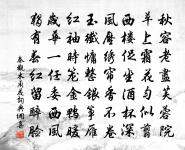 秋容老盡芙蓉院
草上霜花勻似翦
西樓促坐酒杯深
風壓繡簾香不卷
玉纖慵整銀箏雁
紅袖時籠金鴨暖
歲華一任委西風
獨有春紅留醉臉
秦觀木蘭花